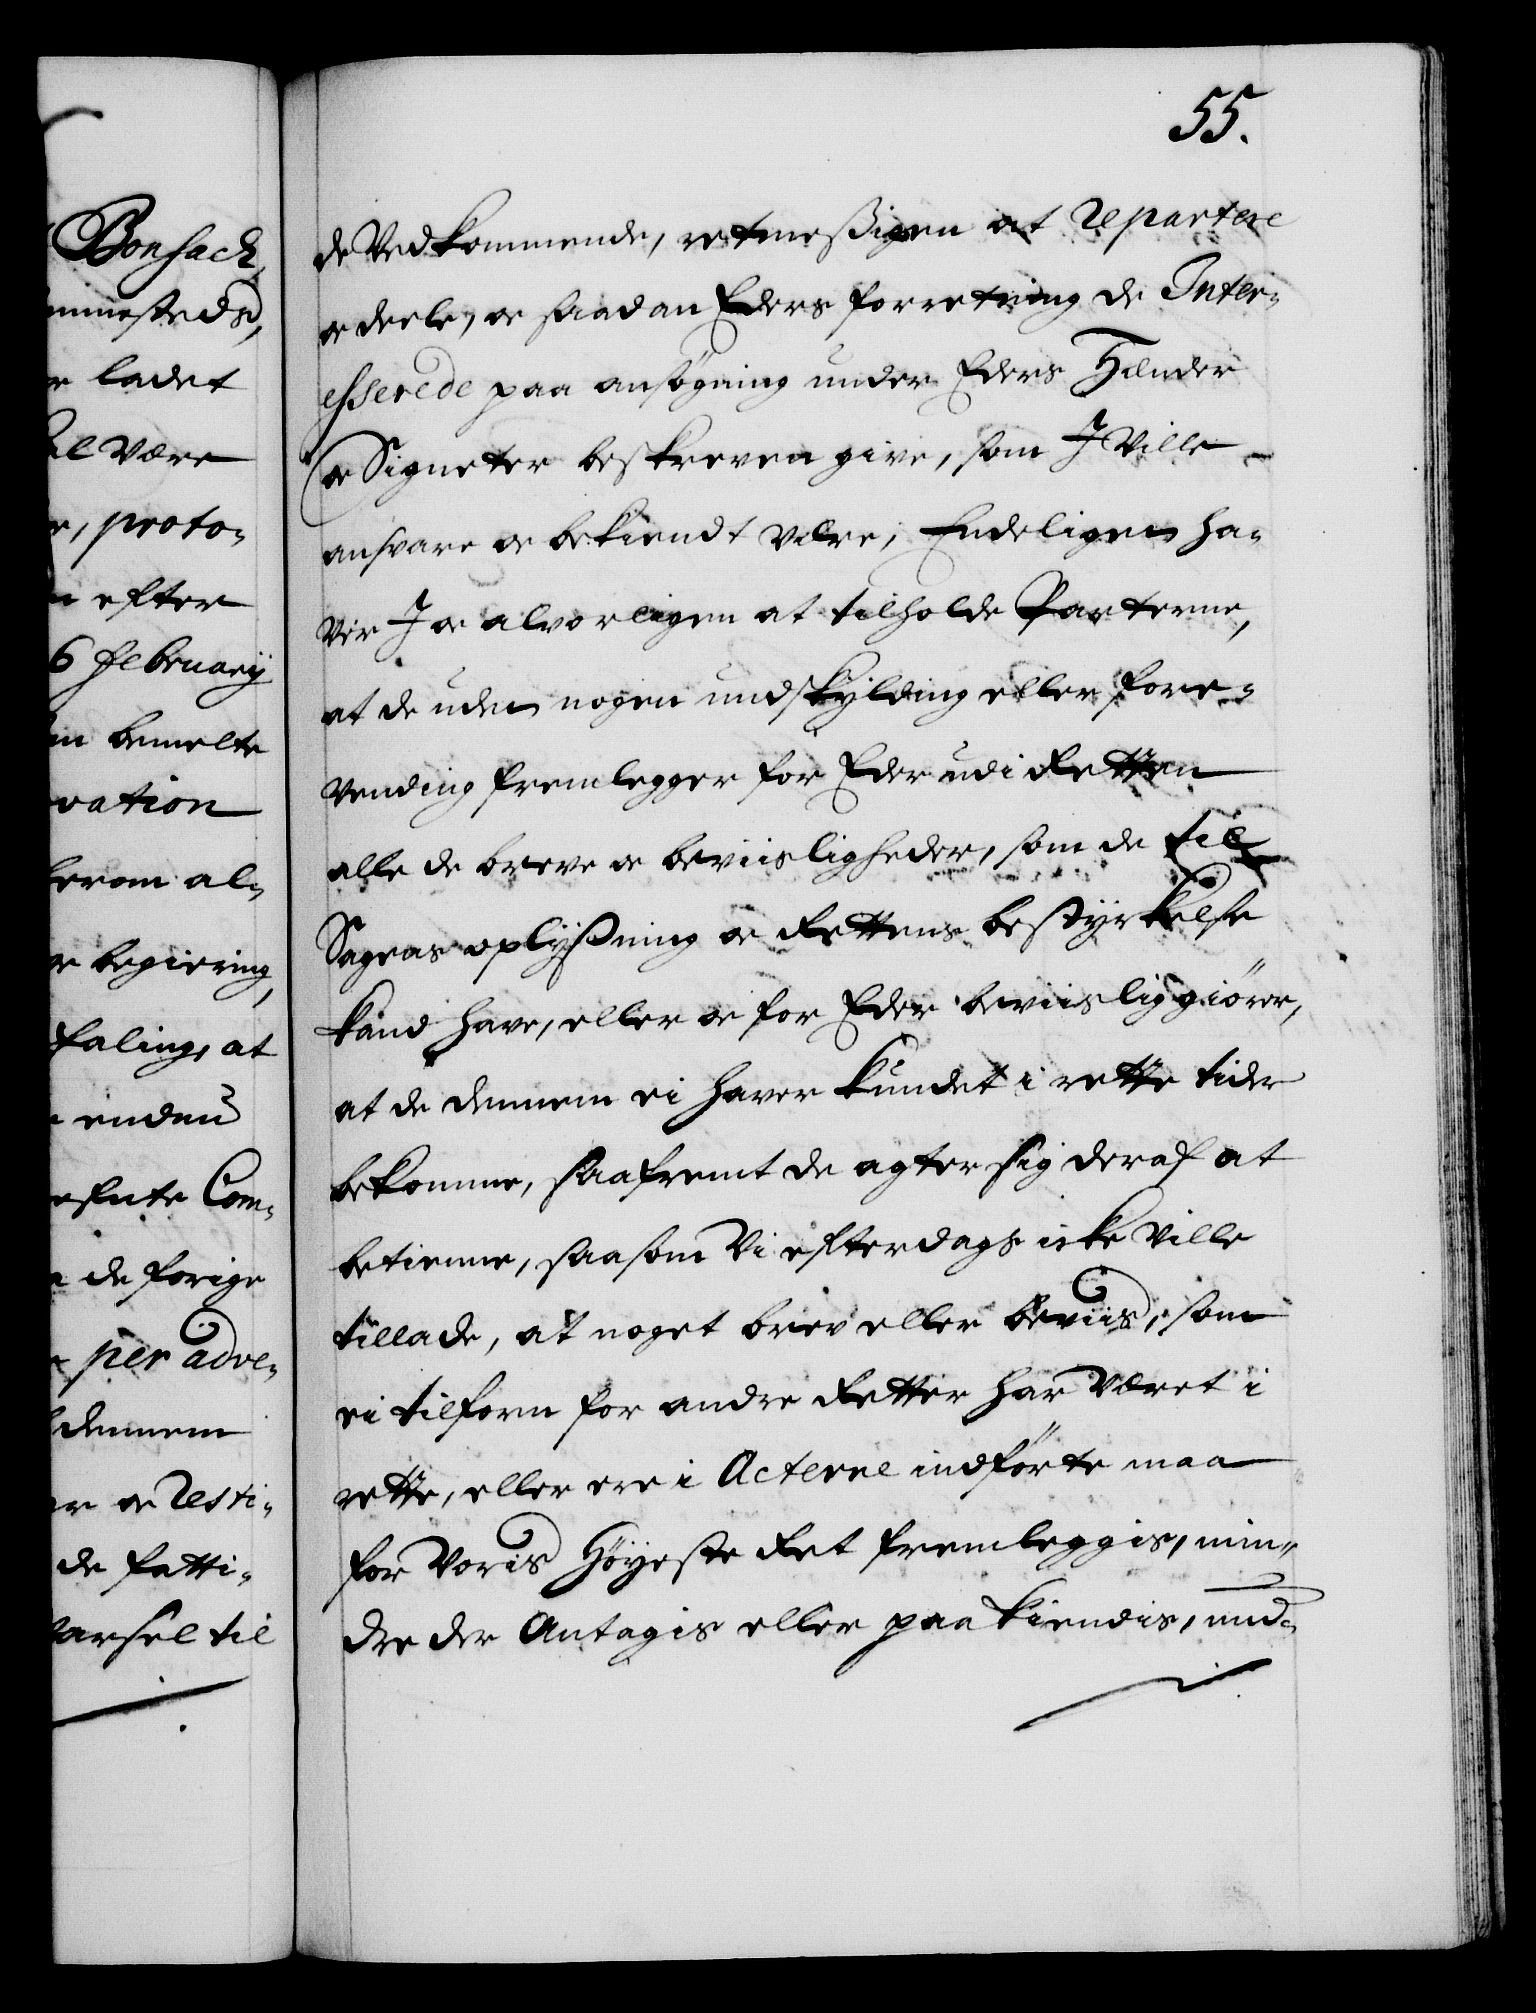 55.
Bonsach,
emmesteds,
r ladet
al være
r, proto-
n efter
6 februarij
in bemelte
vation
herom al-
r begiering,
faling, at
endnu
Com-
de forige
per adve-
dennem
er oc resti-
de fatti-
varsel til
de Vedkommende, retmessigen at repartere
oc deele, oc saadan Eders forretning de Inter-
esserede paa ansögning under Eders Hænder
oc Signeter beskreven give, som J Ville
ansvare oc bekiendt være; Endeligen ha-
ver J oc alvorligen at tilholde Parterne,
at de uden nogen undskylding eller fore-
vending fremlegger for Eder udi Retten
alle de breve oc beviisligheder, som de til
Sagens oplyßning oc Rettens bestyrkelse
kand have, eller oc for Eder beviislig giörer,
at de dennem ei haver kundet i rette tider
bekomme, saafremt de agter sig deraf at
betienne, saasom Vi efterdags icke Ville
tillade, at noget brev eller beviis, som
ei tilforn for andre Retter har været i
rette, eller ere i Acterne indförte maa
for Voris Höyeste Ret fremleggis, min-
dre der Antagis eller paa kiendis, und-